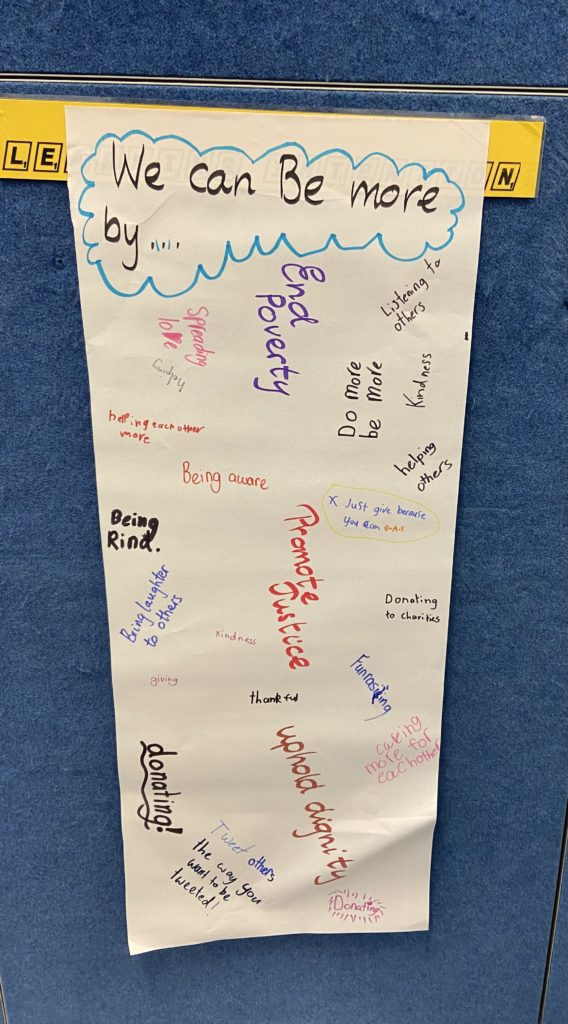 LE
N
We can Be more
by.....
End
Poverty
Listening to
others
Spreading
love
helping
Do more
be more
Kindness
helping each other
more
helping
others
Being aware
x Just give because
you can O.A.S
Being
Kind.
Promote
Justice
Bring laughter
to others
Donating
to charities
kindness
giving
thankful
Funrasiting
caring
more for
eachother
donating!
uphold dignity
Tweet others
the way you
want to be
tweeted!
Donating